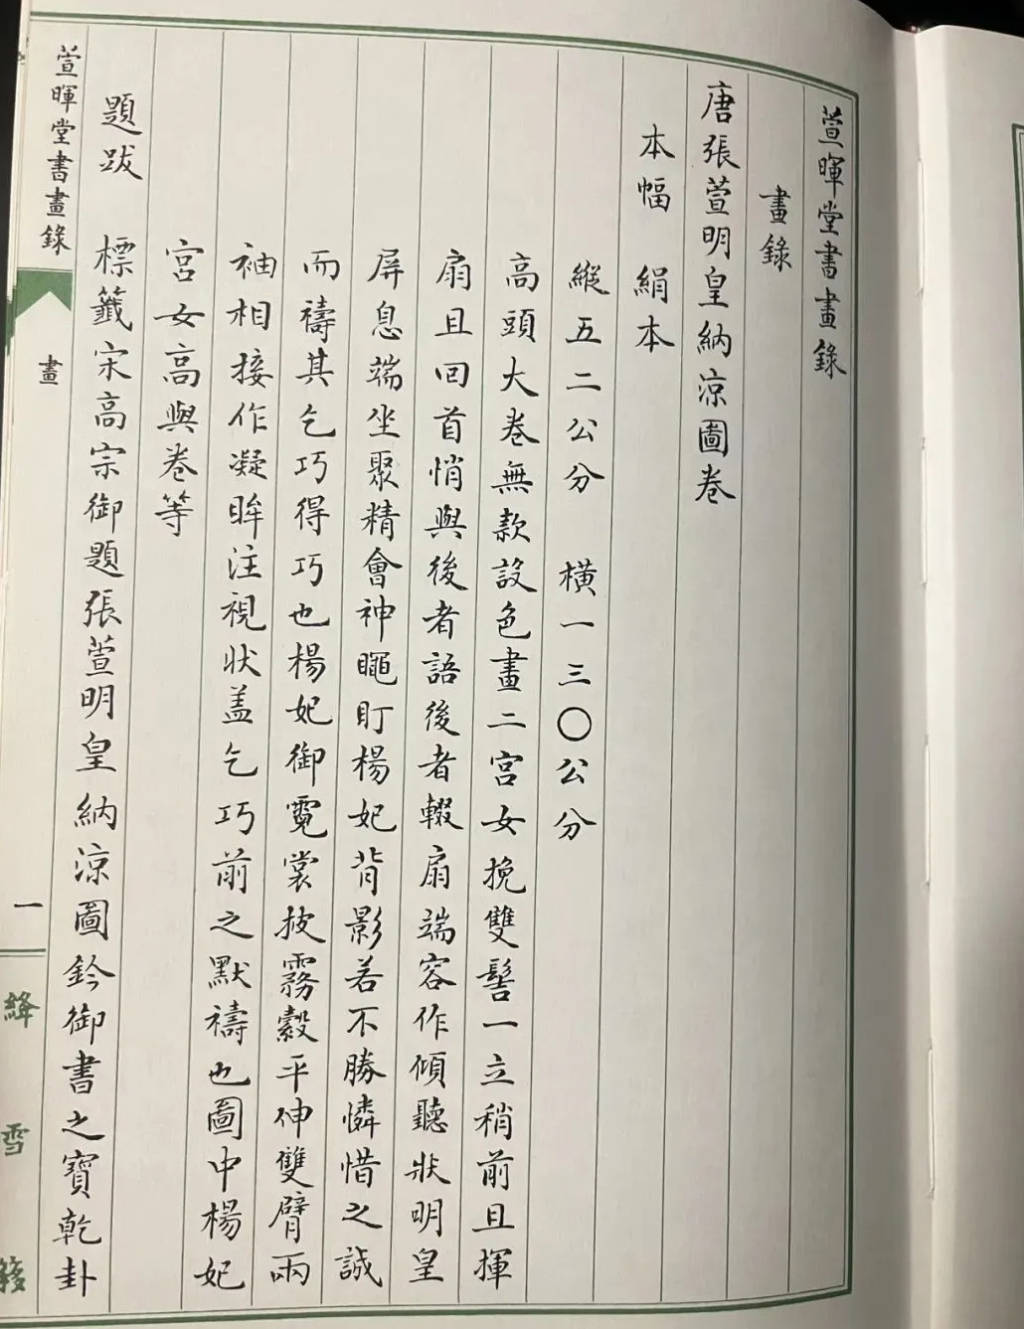 萱暉堂書畫錄
畫錄
唐張萱明皇納涼圖卷
本幅 絹本
縱五二公分 橫一三〇公分
高頭大卷無款設色畫二宮女挽雙髻一立稍前且揮
扇且回首悄與後者語後者輟扇端容作傾聽狀明皇
屏息端坐聚精會神黽盯楊妃背影若不勝憐惜之誠
而禱其乞巧得巧也楊妃御霓裳披霧縠平伸雙臂兩
袖相接作凝眸注視狀盖乞巧前之默禱也圖中楊妃
宮女高與卷等
題跋 標籤宋高宗御題張萱明皇納涼圖鈐御書之寶乾卦
萱暉堂書畫錄 畫 一 絳雪簃